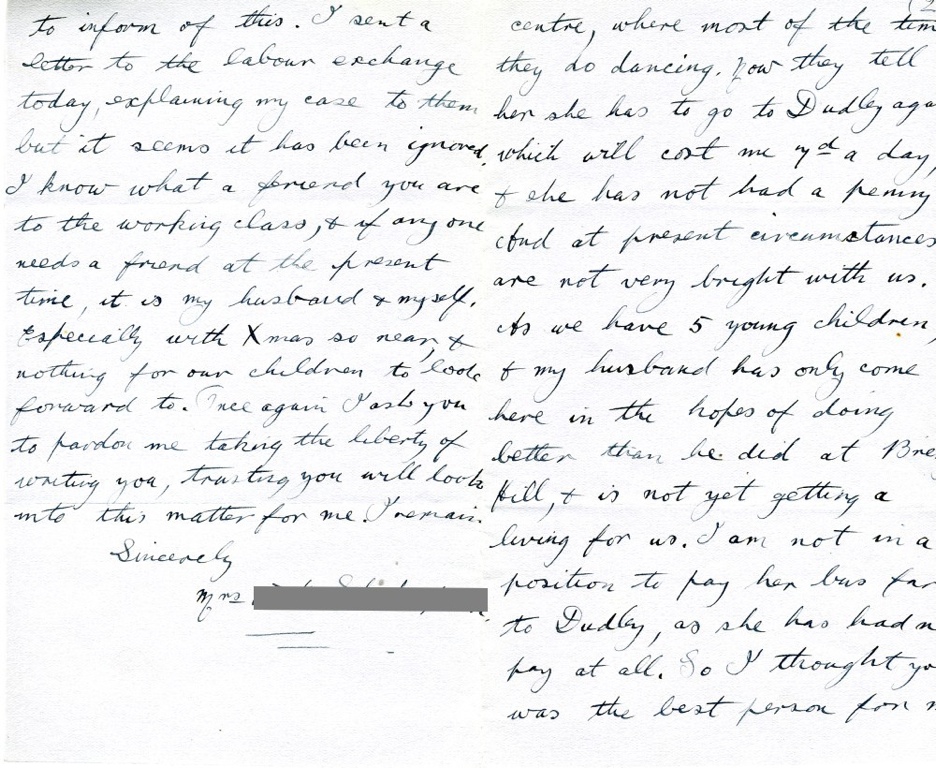 (2
centre, where most of the tim
they do dancing. Now they tell
her she has to go to Dudley aga
which will cost me 7d a day,
& she has not had a penny
And at present circumstances
are not very bright with us.
As we have 5 young children,
& my husband has only come
here in the hopes of doing
better than he did at Brie
Hill, & is not yet getting a
living for us. I am not in a
position to pay her bus far
to Dudley, as she has had n
pay at all. So I thought yo
was the best person for m
to inform of this. I sent a
letter to the labour exchange
today, explaining my case to them
but it seems it has been ignored.
I know what a friend you are
to the working class, & if any one
needs a friend at the present
time, it is my husband & myself.
Especially with Xmas so near, &
nothing for our children to look
forward to. Once again I ask you
to pardon me taking the liberty of
writing you, trusting you will look
into this matter for me. I remain.
Sincerely
Mrs